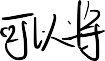 可以将